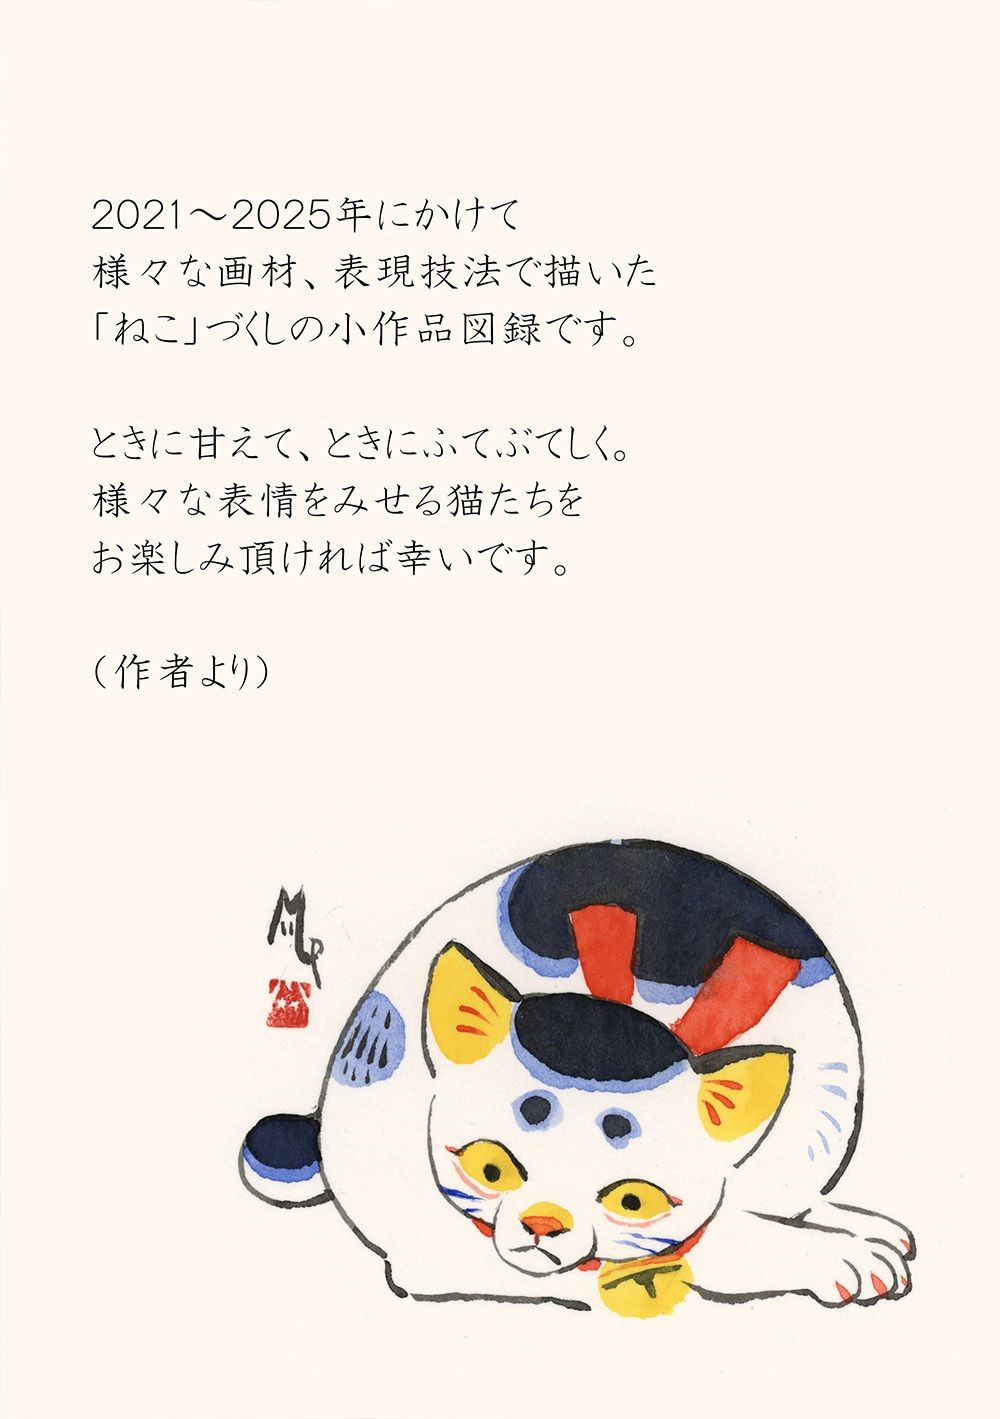 2021～2025年にかけて
様々な画材、表現技法で描いた
「ねこ」づくしの小作品図録です。
ときに甘えて、ときにふてぶてしく。
様々な表情をみせる猫たちを
お楽しみ頂ければ幸いです。
（作者より）